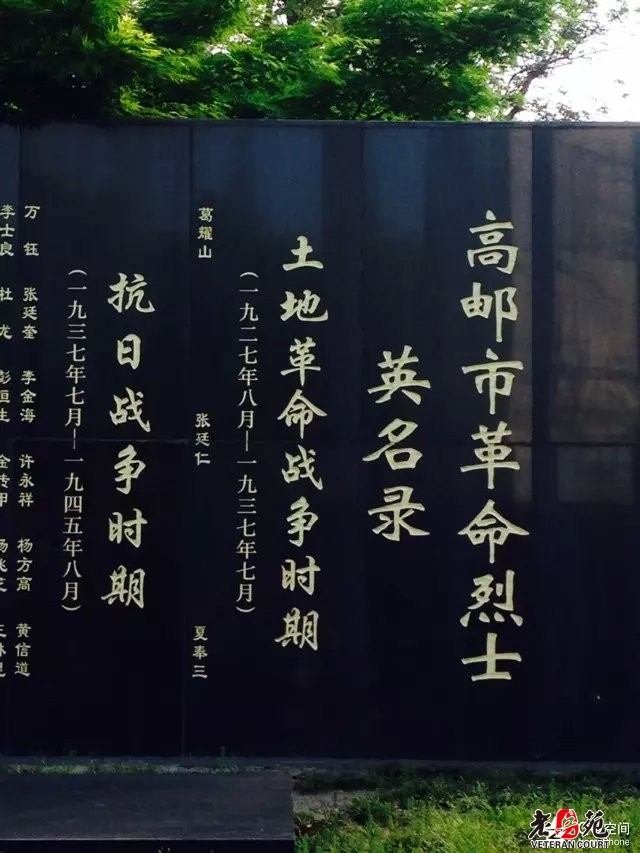 高邮市革命烈士
英名录
土地革命战争时期
（一九二七年八月—一九三七年七月）
葛耀山 张廷仁 夏奉三
抗日战争时期
（一九三七年七月—一九四五年八月）
万钰 张廷奎 李金海 许永祥 杨方高 黄信道
李士良 杜龙 彭恒生
老兵苑
VETERAN COURT
空间